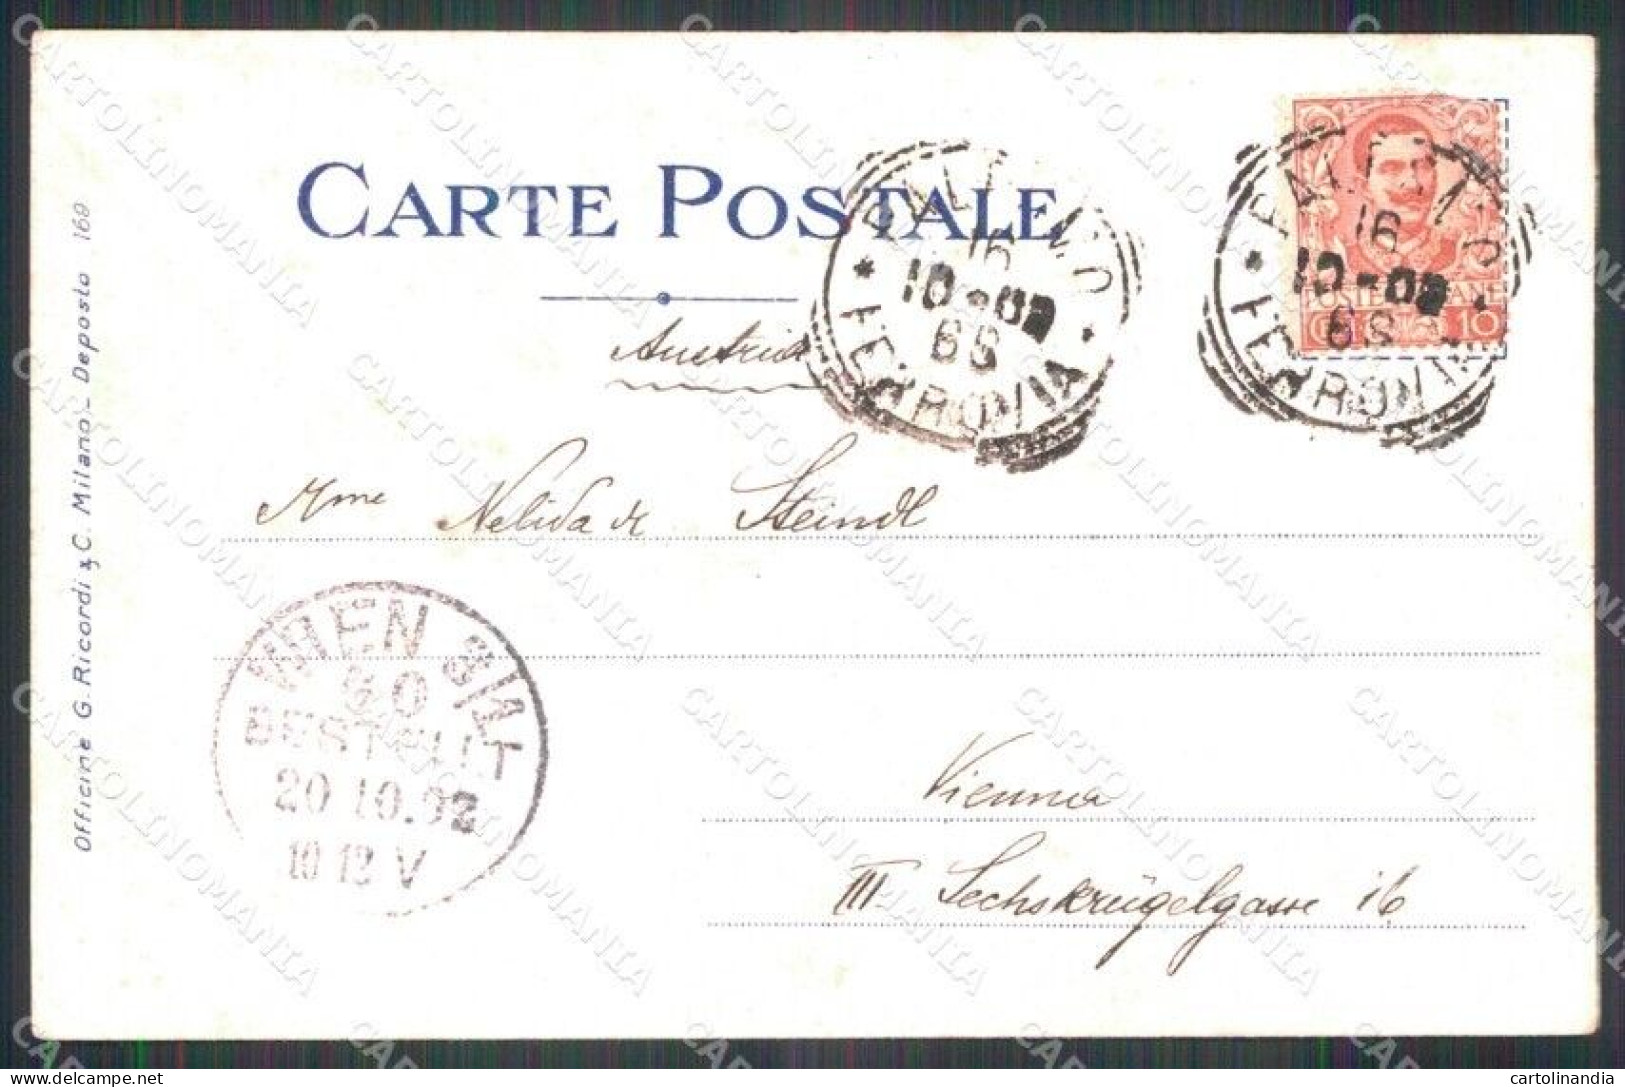 CARTE POSTALE
PALERMO
16
10-02
6S
* FERROVIA *
PALERMO
16
10-02
6S
* FERROVIA *
POSTE ITALIANE
10
Austria
Mme Nelida de Steindl
WIEN 3/1
BESTELLT
20 10.02
10 12 V
Vienna
III Sechskrügelgasse 16
Officine G. Ricordi & C. Milano - Deposto 169
CARTOLINOMANIA
cartolinandia